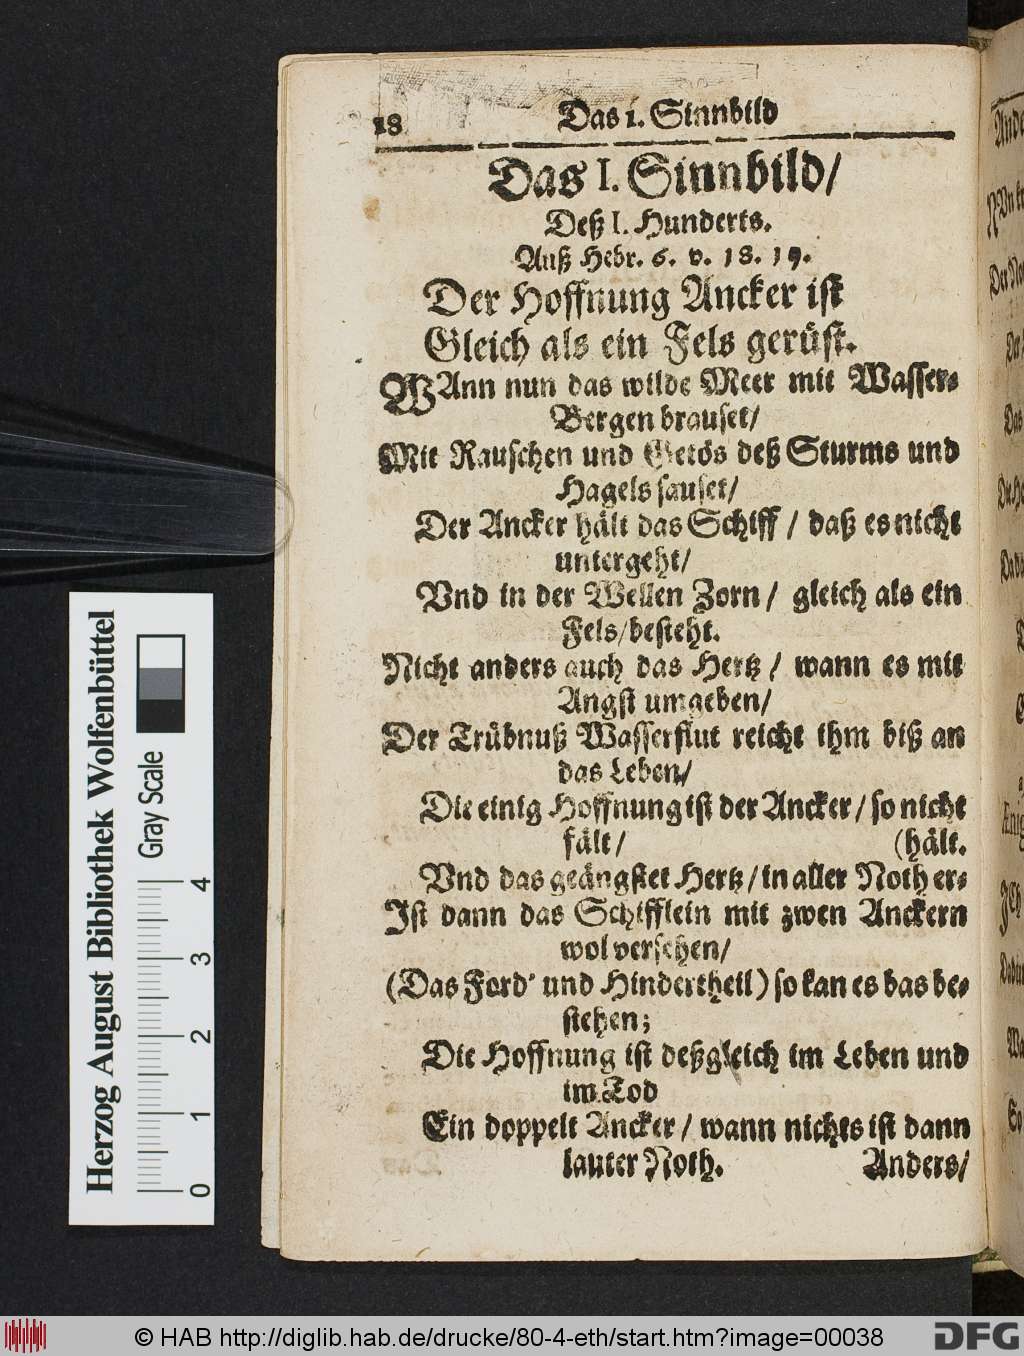 18 Das i. Sinnbild
Das I. Sinnbild/
Deß I. Hunderts.
Auß Hebr. 6. v. 18. 19.
Der Hoffnung Ancker ist
Gleich als ein Fels gerüst.
WAnn nun das wilde Meer mit Wasser-
Bergen brauset/
Mit Rauschen und Getös deß Sturms und
Hagels sauset/
Der Ancker hält das Schiff / daß es nicht
untergeht/
Vnd in der Wellen Zorn / gleich als ein
Fels/besteht.
Nicht anders auch das Hertz / wann es mit
Angst umgeben/
Der Trübnuß Wasserflut reicht ihm biß an
das Leben/
Die einig Hoffnung ist der Ancker / so nicht
fält/ (hält.
Vnd das geängstet Hertz / in aller Noth er-
Ist dann das Schifflein mit zwen Anckern
wol versehen/
(Das Ford' und Hindertheil) so kan es bas be-
stehen;
Die Hoffnung ist deßgleich im Leben und
im Tod
Ein doppelt Ancker / wann nichts ist dann
lauter Noth. Anders/
Herzog August Bibliothek Wolfenbüttel
Gray Scale
0 1 2 3 4
© HAB http://diglib.hab.de/drucke/80-4-eth/start.htm?image=00038
DFG